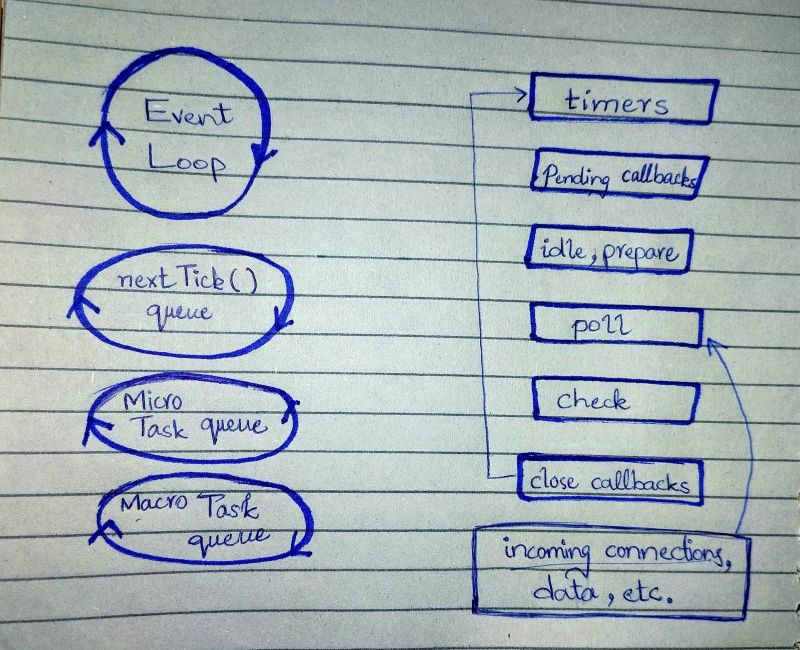 Event
Loop
nextTick()
queue
Micro
Task queue
Macro Task
queue
timers
Pending callbacks
idle, prepare
poll
check
close callbacks
incoming connections,
data, etc.